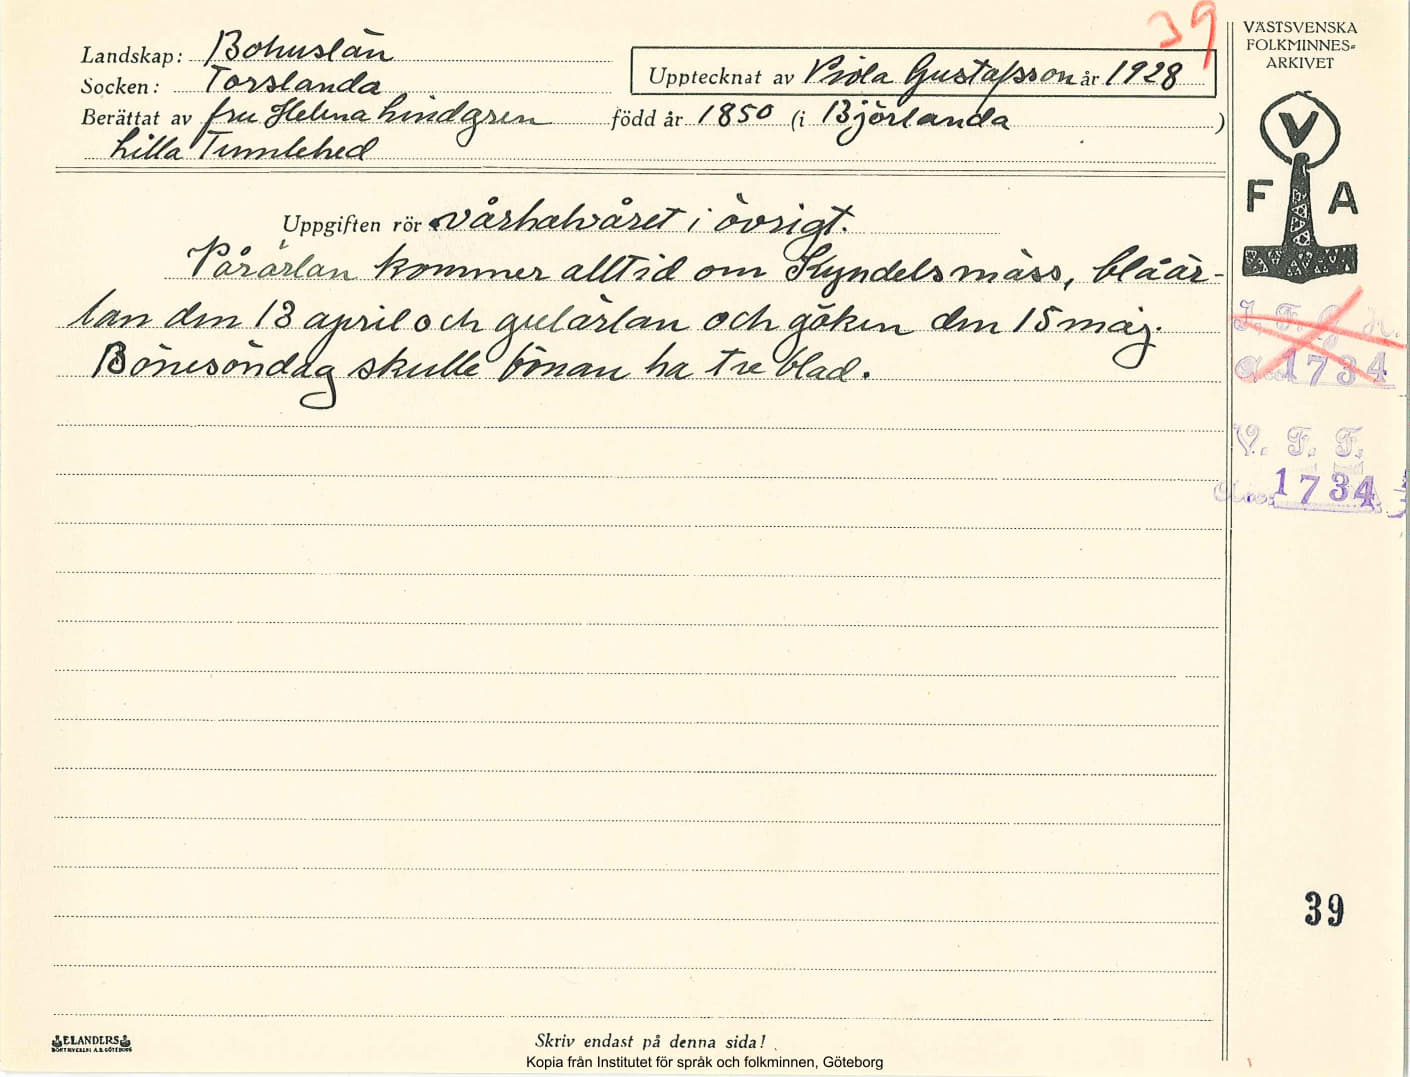 39
VÄSTSVENSKA
FOLKMINNES-
ARKIVET
Landskap: Bohuslän
Socken: Torslanda
Upptecknat av Viola Gustafsson år 1928
Berättat av fru Helena Lindgren född år 1850 (i Björlanda)
Lilla Tumlehed
V
F A
Uppgiften rör vårhalvåret i övrigt.
Vårärlan kommer alltid om Kyndelsmäss, blåär-
lan den 13 april och gulärlan och göken den 15 maj.
Bönesöndag skulle bönan ha tre blad.
1734
V. F. F.
Acc. 1734
39
ELANDERS
Skriv endast på denna sida!
Kopia från Institutet för språk och folkminnen, Göteborg